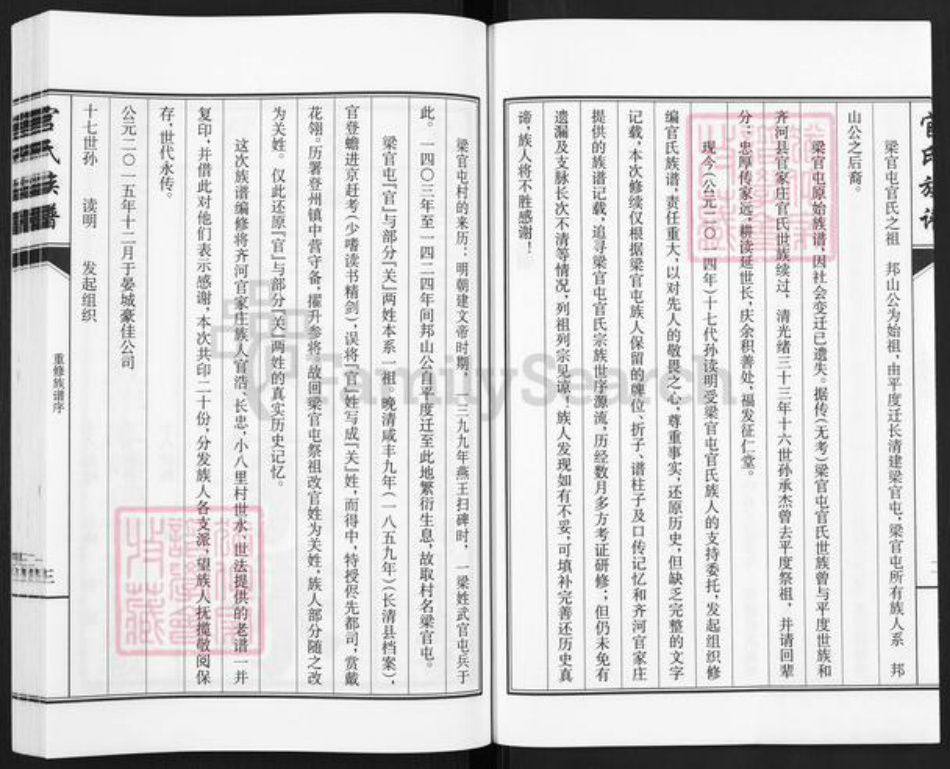 梁官屯官氏之祖　邦山公为始祖，由平度迁长清建梁官屯，梁官屯所有族人系　邦
山公之后裔。
梁官屯原始族谱，因社会变迁已遗失。据传（无考）梁官屯官氏世族曾与平度世族和
齐河县官家庄官氏世族续过，清光绪三十三年十六世孙承杰曾去平度祭祖，并请回辈
分：忠厚传家远，耕读延世长，庆余积善处，福发征仁堂。
现今（公元二〇一四年）十七代孙读明受梁官屯官氏族人的支持委托，发起组织修
编官氏族谱，责任重大，以对先人的敬畏之心，尊重事实，还原历史，但缺乏完整的文字
记载，本次修续仅根据梁官屯族人保留的牌位、折子、谱柱子及口传记忆和齐河官家庄
提供的族谱记载，追寻梁官屯官氏宗族世序源流，历经数月多方考证研修；但仍未免有
遗漏及支脉长次不清等情况，列祖列宗见谅！族人发现如有不妥，可填补完善还历史真
谛，族人将不胜感谢！
梁官屯村的来历：明朝建文帝时期，一三九九年燕王扫碑时，一梁姓武官屯兵于
此。一四〇三年至一四二四年间邦山公自平度迁至此地繁衍生息，故取村名梁官屯。
梁官屯『官』与部分『关』两姓本系一祖。晚清咸丰九年（一八五九年）（长清县档案），
官登蟾进京赶考（少嗜读书精剑），误将『官』姓写成『关』姓，而得中，特授侭先都司，赏戴
花翎。历署登州镇中营守备，擢升参将，故回梁官屯祭祖改官姓为关姓，族人部分随之改
为关姓。仅此还原『官』与部分『关』两姓的真实历史记忆。
这次族谱编修将齐河官家庄族人官浩、长忠，小八里村世水、世法提供的老谱一并
复印，并借此对他们表示感谢，本次共印二十份，分发族人各支派，望族人抚揽敬阅保
存，世代永传。
公元二〇一五年十二月于晏城豪佳公司
十七世孙　读明　发起组织
重修族谱序
官氏族谱
三